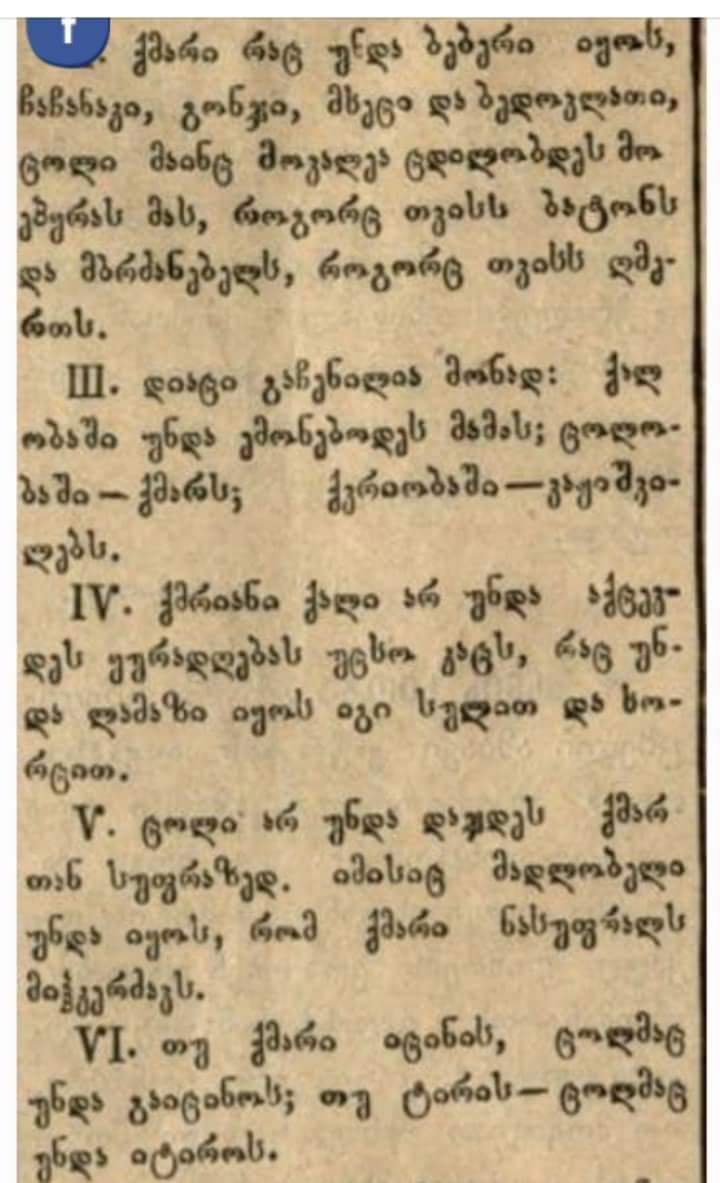 ქმარი რაც უნდა ბებერი იყოს,
ჩაჩანაკი, გონჯი, მხეცი და ბედოვლათი,
ცოლი მაინც მოვალეა ცდილობდეს მო
ეპყრას მას, როგორც თვისს ბატონს
და მბრძანებელს, როგორც თვისს ღმე-
რთს.
III. დიაცი გაჩენილია მონად: ქალ
ობაში უნდა ემონებოდეს მამას; ცოლო-
ბაში — ქმარს; ქვრიობაში — ვაჟიშვი-
ლებს.
IV. ქმრიანი ქალი არ უნდა აქცევ-
დეს ყურადღებას უცხო კაცს, რაც უნ-
და ლამაზი იყოს იგი სულით და ხო-
რცით.
V. ცოლი არ უნდა დაჯდეს ქმარ
თან სუფრაზედ. იმისიც მადლობელი
უნდა იყოს, რომ ქმარი ნასუფრალს
VI. თუ ქმარი იცინის, ცოლმაც
უნდა გაიცინოს; თუ ტირის — ცოლმაც
უნდა იტიროს.